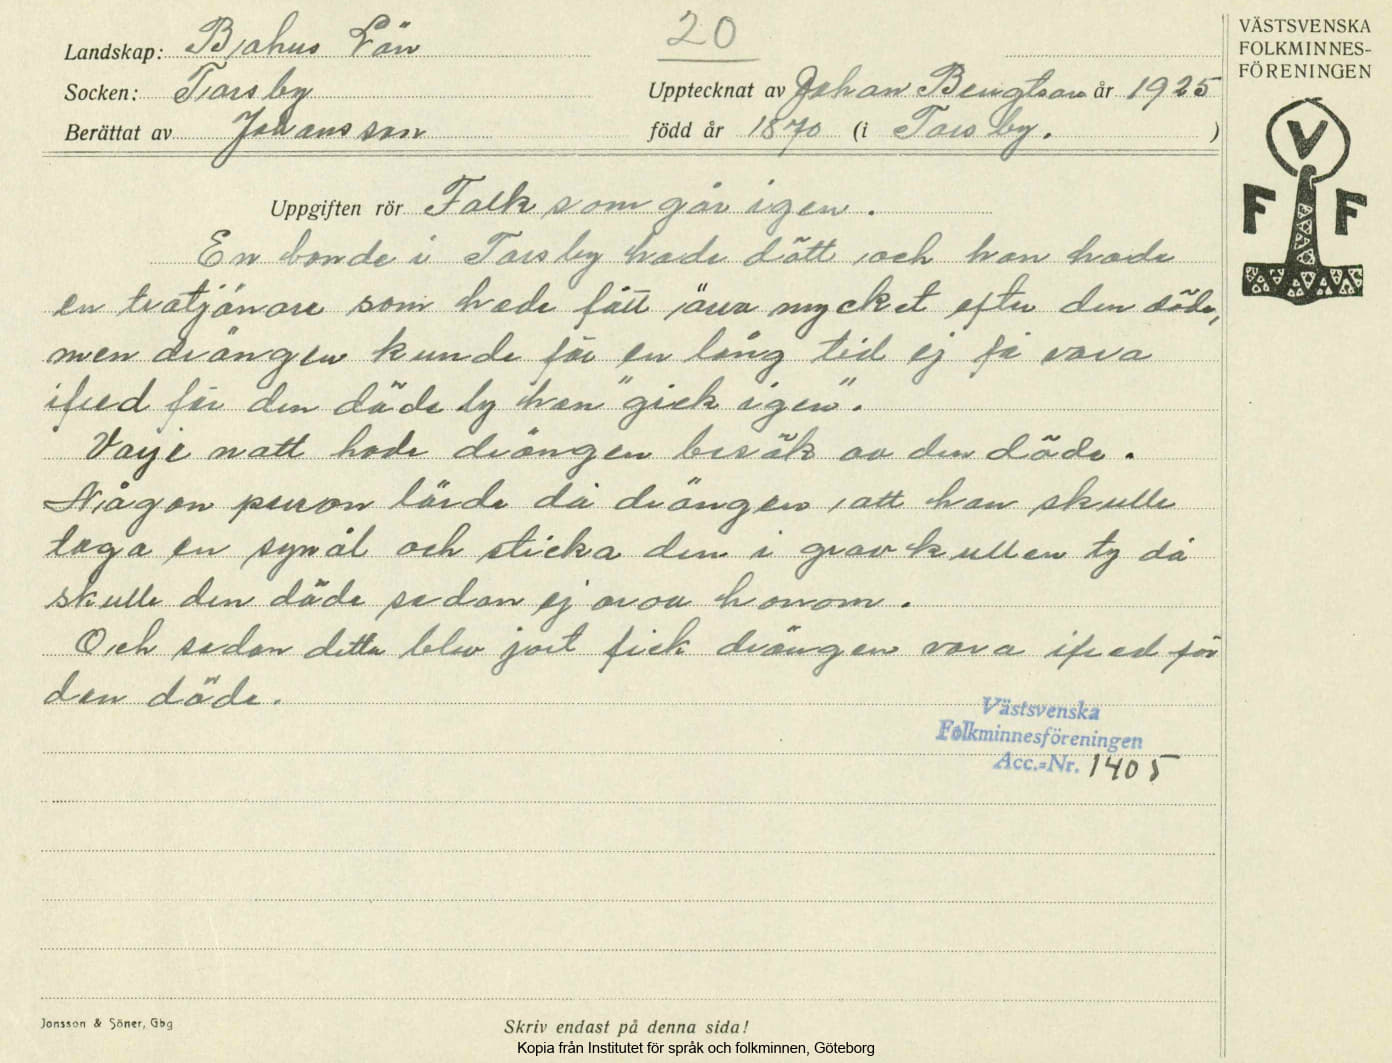 Landskap: Bohus Län
20
VÄSTSVENSKA
FOLKMINNES-
FÖRENINGEN
Socken: Torsby
Upptecknat av Johan Bengtson år 1925
Berättat av Johansson
född år 1870 (i Torsby. )
V
F F
Uppgiften rör Folk som går igen.
En bonde i Torsby hade dött, och han hade
en trotjänare som hade fått ärva mycket efter den döde,
men drängen kunde för en lång tid ej få vara
ifred för den döde ty han "gick igen".
Varje natt hade drängen besök av den döde.
Någon person lärde då drängen, att han skulle
taga en synål och sticka den i gravkullen ty då
skulle den döde sedan ej oroa honom.
Och sedan detta blev jort fick drängen vara ifred för
den döde.
Västsvenska
Folkminnesföreningen
Acc.=Nr. 1405
Jonsson & Söner, Gbg
Skriv endast på denna sida!
Kopia från Institutet för språk och folkminnen, Göteborg